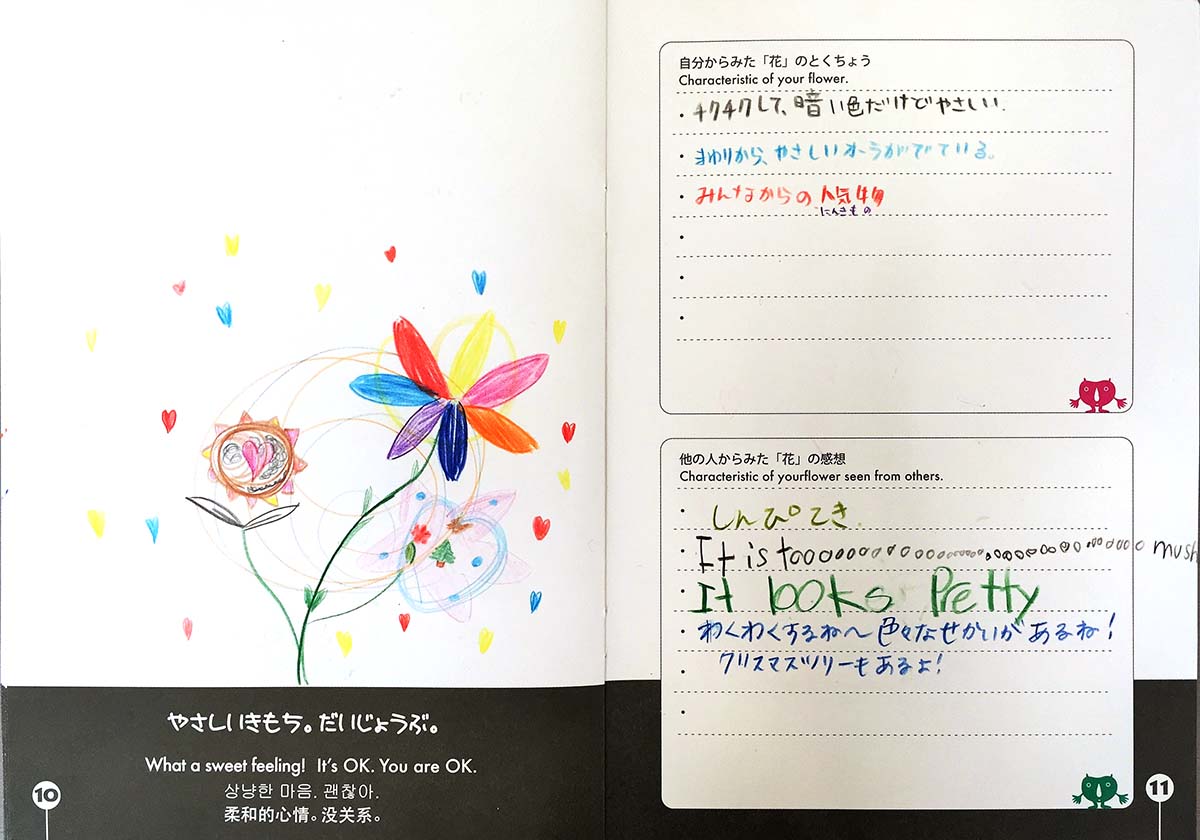 やさしいきもち。だいじょうぶ。
What a sweet feeling!  It's OK. You are OK.
상냥한 마음. 괜찮아.
柔和的心情。没关系。
10
自分からみた「花」のとくちょう
Characteristic of your flower.
・チクチクして、暗い色だけどやさしい.
・まわりから、やさしいオーラがでている。
・みんなからの人気物
にんきもの
他の人からみた「花」の感想
Characteristic of yourflower seen from others.
・しんぴてき.
・It is tooooooooooooooooooooooooooooooooo mush
・It looks Pretty
・わくわくするね〜色々なせかいがあるね!
クリスマスツリーもあるよ!
11